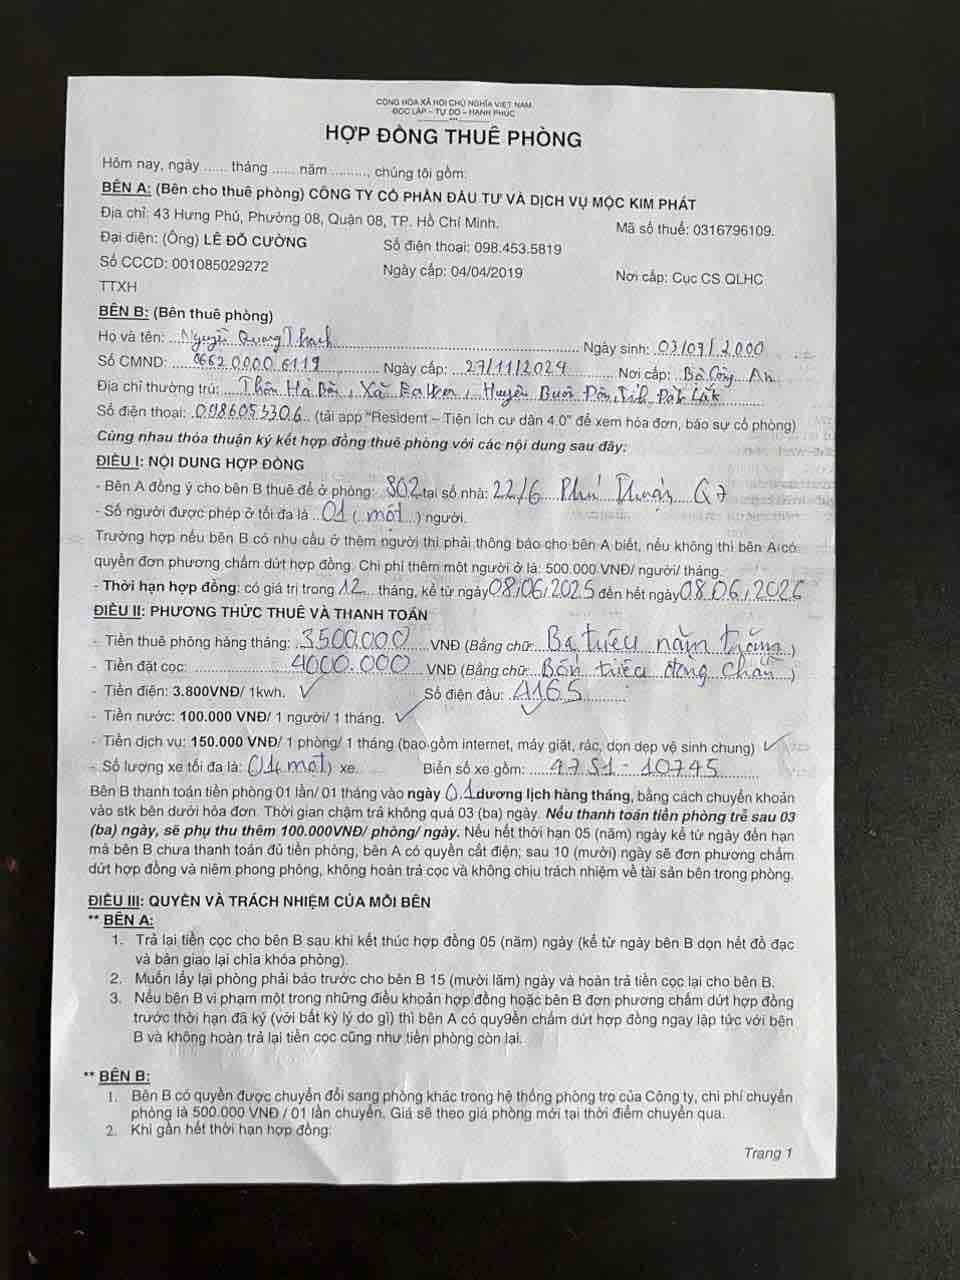 CỘNG HÒA XÃ HỘI CHỦ NGHĨA VIỆT NAM
ĐỘC LẬP – TỰ DO – HẠNH PHÚC
HỢP ĐỒNG THUÊ PHÒNG
Hôm nay, ngày ...... tháng ...... năm .........., chúng tôi gồm:
BÊN A: (Bên cho thuê phòng) CÔNG TY CỔ PHẦN ĐẦU TƯ VÀ DỊCH VỤ MỘC KIM PHÁT
Địa chỉ: 43 Hưng Phú, Phường 08, Quận 08, TP. Hồ Chí Minh. Mã số thuế: 0316796109.
Đại diện: (Ông) LÊ ĐỖ CƯỜNG Số điện thoại: 098.453.5819
Số CCCD: 001085029272 Ngày cấp: 04/04/2019 Nơi cấp: Cục CS QLHC
TTXH
BÊN B: (Bên thuê phòng)
Họ và tên: Nguyễn Quang Thạch Ngày sinh: 03/07/2000
Số CMND: 066200006119 Ngày cấp: 27/11/2024 Nơi cấp: Bộ Công An
Địa chỉ thường trú: Thôn Hà Bắc, Xã Ea Wer, Huyện Buôn Đôn, Tỉnh Đắk Lắk
Số điện thoại: 0986053306 (tải app "Resident – Tiện ích cư dân 4.0" để xem hóa đơn, báo sự cố phòng)
Cùng nhau thỏa thuận ký kết hợp đồng thuê phòng với các nội dung sau đây:
ĐIỀU I: NỘI DUNG HỢP ĐỒNG
- Bên A đồng ý cho bên B thuê để ở phòng: 802 tại số nhà: 22/6 Phú Thuận Q7
- Số người được phép ở tối đa là 01 (một) người.
Trường hợp nếu bên B có nhu cầu ở thêm người thì phải thông báo cho bên A biết, nếu không thì bên A có
quyền đơn phương chấm dứt hợp đồng. Chi phí thêm một người ở là: 500.000 VNĐ/ người/ tháng.
- Thời hạn hợp đồng: có giá trị trong 12 tháng, kể từ ngày 08/06/2025 đến hết ngày 08.06/2026
ĐIỀU II: PHƯƠNG THỨC THUÊ VÀ THANH TOÁN
- Tiền thuê phòng hàng tháng: 3500.000 VNĐ (Bằng chữ: Ba triệu năm trăm)
- Tiền đặt cọc: 4000.000 VNĐ (Bằng chữ: Bốn triệu đồng chẵn)
- Tiền điện: 3.800VNĐ/ 1kwh. Số điện đầu: 4165
- Tiền nước: 100.000 VNĐ/ 1 người/ 1 tháng.
- Tiền dịch vụ: 150.000 VNĐ/ 1 phòng/ 1 tháng (bao gồm internet, máy giặt, rác, dọn dẹp vệ sinh chung)
- Số lượng xe tối đa là: 01 (một) xe. Biển số xe gồm: 47S1-10745
Bên B thanh toán tiền phòng 01 lần/ 01 tháng vào ngày 01 dương lịch hàng tháng, bằng cách chuyển khoản
vào stk bên dưới hóa đơn. Thời gian chậm trả không quá 03 (ba) ngày. Nếu thanh toán tiền phòng trễ sau 03
(ba) ngày, sẽ phụ thu thêm 100.000VNĐ/ phòng/ ngày. Nếu hết thời hạn 05 (năm) ngày kể từ ngày đến hạn
mà bên B chưa thanh toán đủ tiền phòng, bên A có quyền cắt điện; sau 10 (mười) ngày sẽ đơn phương chấm
dứt hợp đồng và niêm phong phòng, không hoàn trả cọc và không chịu trách nhiệm về tài sản bên trong phòng.
ĐIỀU III: QUYỀN VÀ TRÁCH NHIỆM CỦA MỖI BÊN
** BÊN A:
1. Trả lại tiền cọc cho bên B sau khi kết thúc hợp đồng 05 (năm) ngày (kể từ ngày bên B dọn hết đồ đạc
và bàn giao lại chìa khóa phòng).
2. Muốn lấy lại phòng phải báo trước cho bên B 15 (mười lăm) ngày và hoàn trả tiền cọc lại cho bên B.
3. Nếu bên B vi phạm một trong những điều khoản hợp đồng hoặc bên B đơn phương chấm dứt hợp đồng
trước thời hạn đã ký (với bất kỳ lý do gì) thì bên A có quy9ền chấm dứt hợp đồng ngay lập tức với bên
B và không hoàn trả lại tiền cọc cũng như tiền phòng còn lại.
** BÊN B:
1. Bên B có quyền được chuyển đổi sang phòng khác trong hệ thống phòng trọ của Công ty, chi phí chuyển
phòng là 500.000 VNĐ / 01 lần chuyển. Giá sẽ theo giá phòng mới tại thời điểm chuyển qua.
2. Khi gần hết thời hạn hợp đồng:
Trang 1